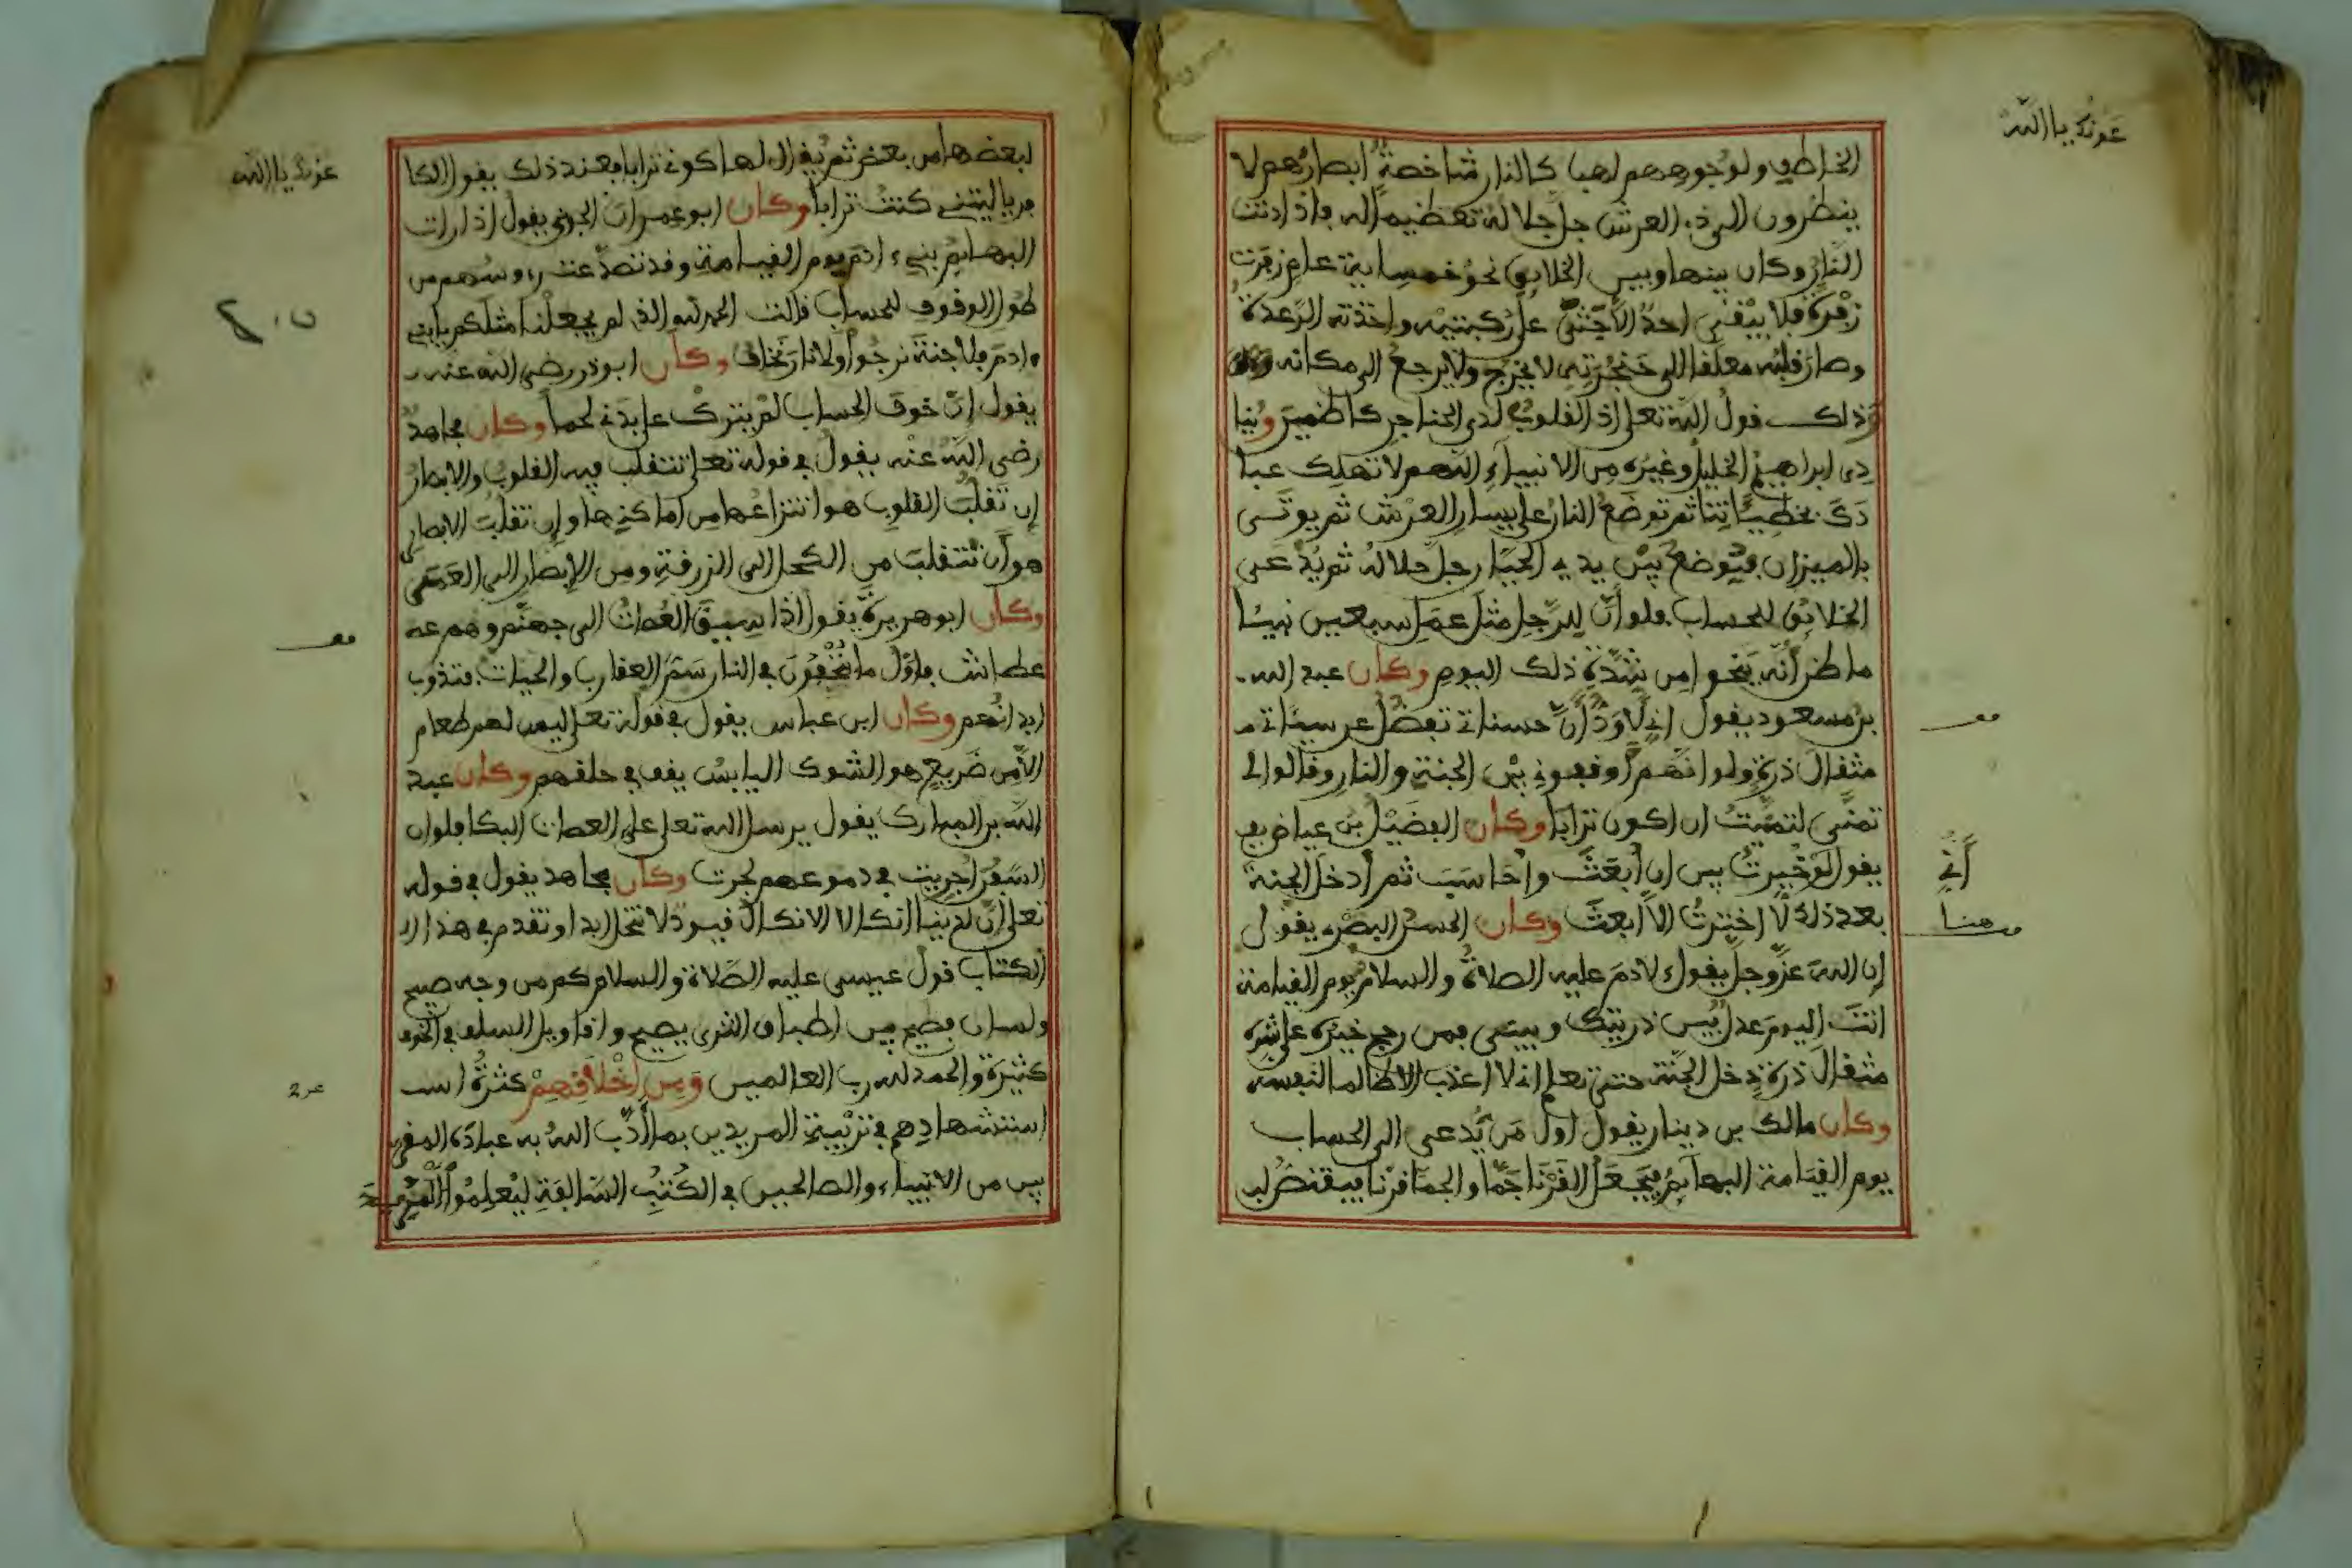 عونك يا الله
الخاطف ولوجوههم لهبا كالنار شاخصة ابصارهم لا
ينظرون الى ذى العرش جل جلاله تعظيما له فاذا دنت
النار وكان بينها وبين الخلايق نحو خمسماية عام زفرت
زفرة فلا يبقى احد الا جثى على ركبتيه واخذته الرعدة
وصار قلبه معلقا الى حنجرته لا يخرج ولا يرجع الى مكانه
وذلك قول الله تعلى اذ القلوب لدى الحناجر كاظمين وينا
دى ابراهيم الخليل وغيره من الانبياء اللهم لا تهلك عبا
دك بخطيئاتنا ثم توضع النار على يسار العرش ثم يوتى
بالميزان فيوضع بين يدي الجبار جل جلاله ثم يدعى
الخلايق للحساب فلو ان للرجل مثل عمل سبعين نبيئا
ما ظن انه ينجوا من شدة ذلك اليوم وكان عبد الله
بن مسعود يقول انى لاود ان حسناتى تفضل عن سيئاتى
مثقال ذرة ولو انهم اوقفونى بين الجنة والنار وقالوا لى
تمنى لتمنيت ان اكون ترابا وكان الفضيل بن عياض
يقول لو خيرت بين ان ابعث واحاسب ثم ادخل الجنة
بعد ذلك لاخترت الا ابعث وكان الحسن البصرى يقول
ان الله عز وجل يقول لادم عليه الصلاة والسلام يوم القيامة
انت اليوم عدل بين ذريتك وبينى فمن رجح خيره على شره
مثقال ذرة دخل الجنة حتى تعلم انى لا اعذب الا ظالما لنفسه
وكان مالك بن دينار يقول اول من يدعى الى الحساب
يوم القيامة البهايم فيجعل القرنا جما والجما قرنا فيقتص
أني
هنا
عونك يا الله
لبعضها من بعض ثم يقال لها كونى ترابا فعند ذلك يقول الكا
فر يا ليتنى كنت ترابا وكان ابو عمران الجونى يقول اذا رات
البهايم بنى ادم يوم القيامة وقد تصدعت رءوسهم من
طول الوقوف للحساب قالت الحمد لله الذى لم يجعلنا مثلكم يا بنى
ادم فلا جنة نرجوا ولا نار نخاف وكان ابو ذر رضى الله عنه
يقول ان خوف الحساب لم يترك على بدنى لحما وكان مجاهد
رضى الله عنه يقول فى قوله تعلى تتقلب فيه القلوب والابصار
ان تقلب القلوب هو انتزاعها من اماكنها وان تقلب الابصار
هو ان تتقلب من الكحل الى الزرقة ومن الابصار الى العمى
وكان ابو هريرة يقول اذا سيق العصات الى جهنم وهم
عطاش فاول ما يتحفون فى النار سم العقارب والحيات فتذوب
ابدانهم وكان ابن عباس يقول فى قوله تعلى ليس لهم طعام
الا من ضريع هو الشوك اليابس يقف فى حلقهم وكان عبد
الله بن المبارك يقول يرسل الله تعلى على العصات البكا فلو ان
السفن اجريت فى دموعهم لجرت وكان مجاهد يقول فى قوله
تعلى ان لدينا انكالا الانكال قيود لا تنحل ابدا وتقدم فى هذا
الكتاب قول عيسى عليه الصلاة والسلام كم من وجه صبيح
ولسان فصيح بين اطباق الثرى يصيح واقاويل السلف فى الخوف
كثيرة والحمد لله رب العالمين ومن اخلاقهم كثرة
استشهادهم فى تربية المريدين بما ادب الله به عباده المقر
بين من الانبياء والصالحين فى الكتب السالفة ليعلموا